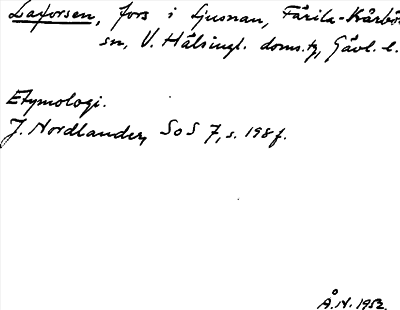 Laxforsen, fors i Ljusnan, Färila-Kårbö
sn, V. Hälsingl. doms.tg, Gävl. l.
Etymologi.
J. Nordlander, SoS 7, s. 198 f.
Å.N. 1952.